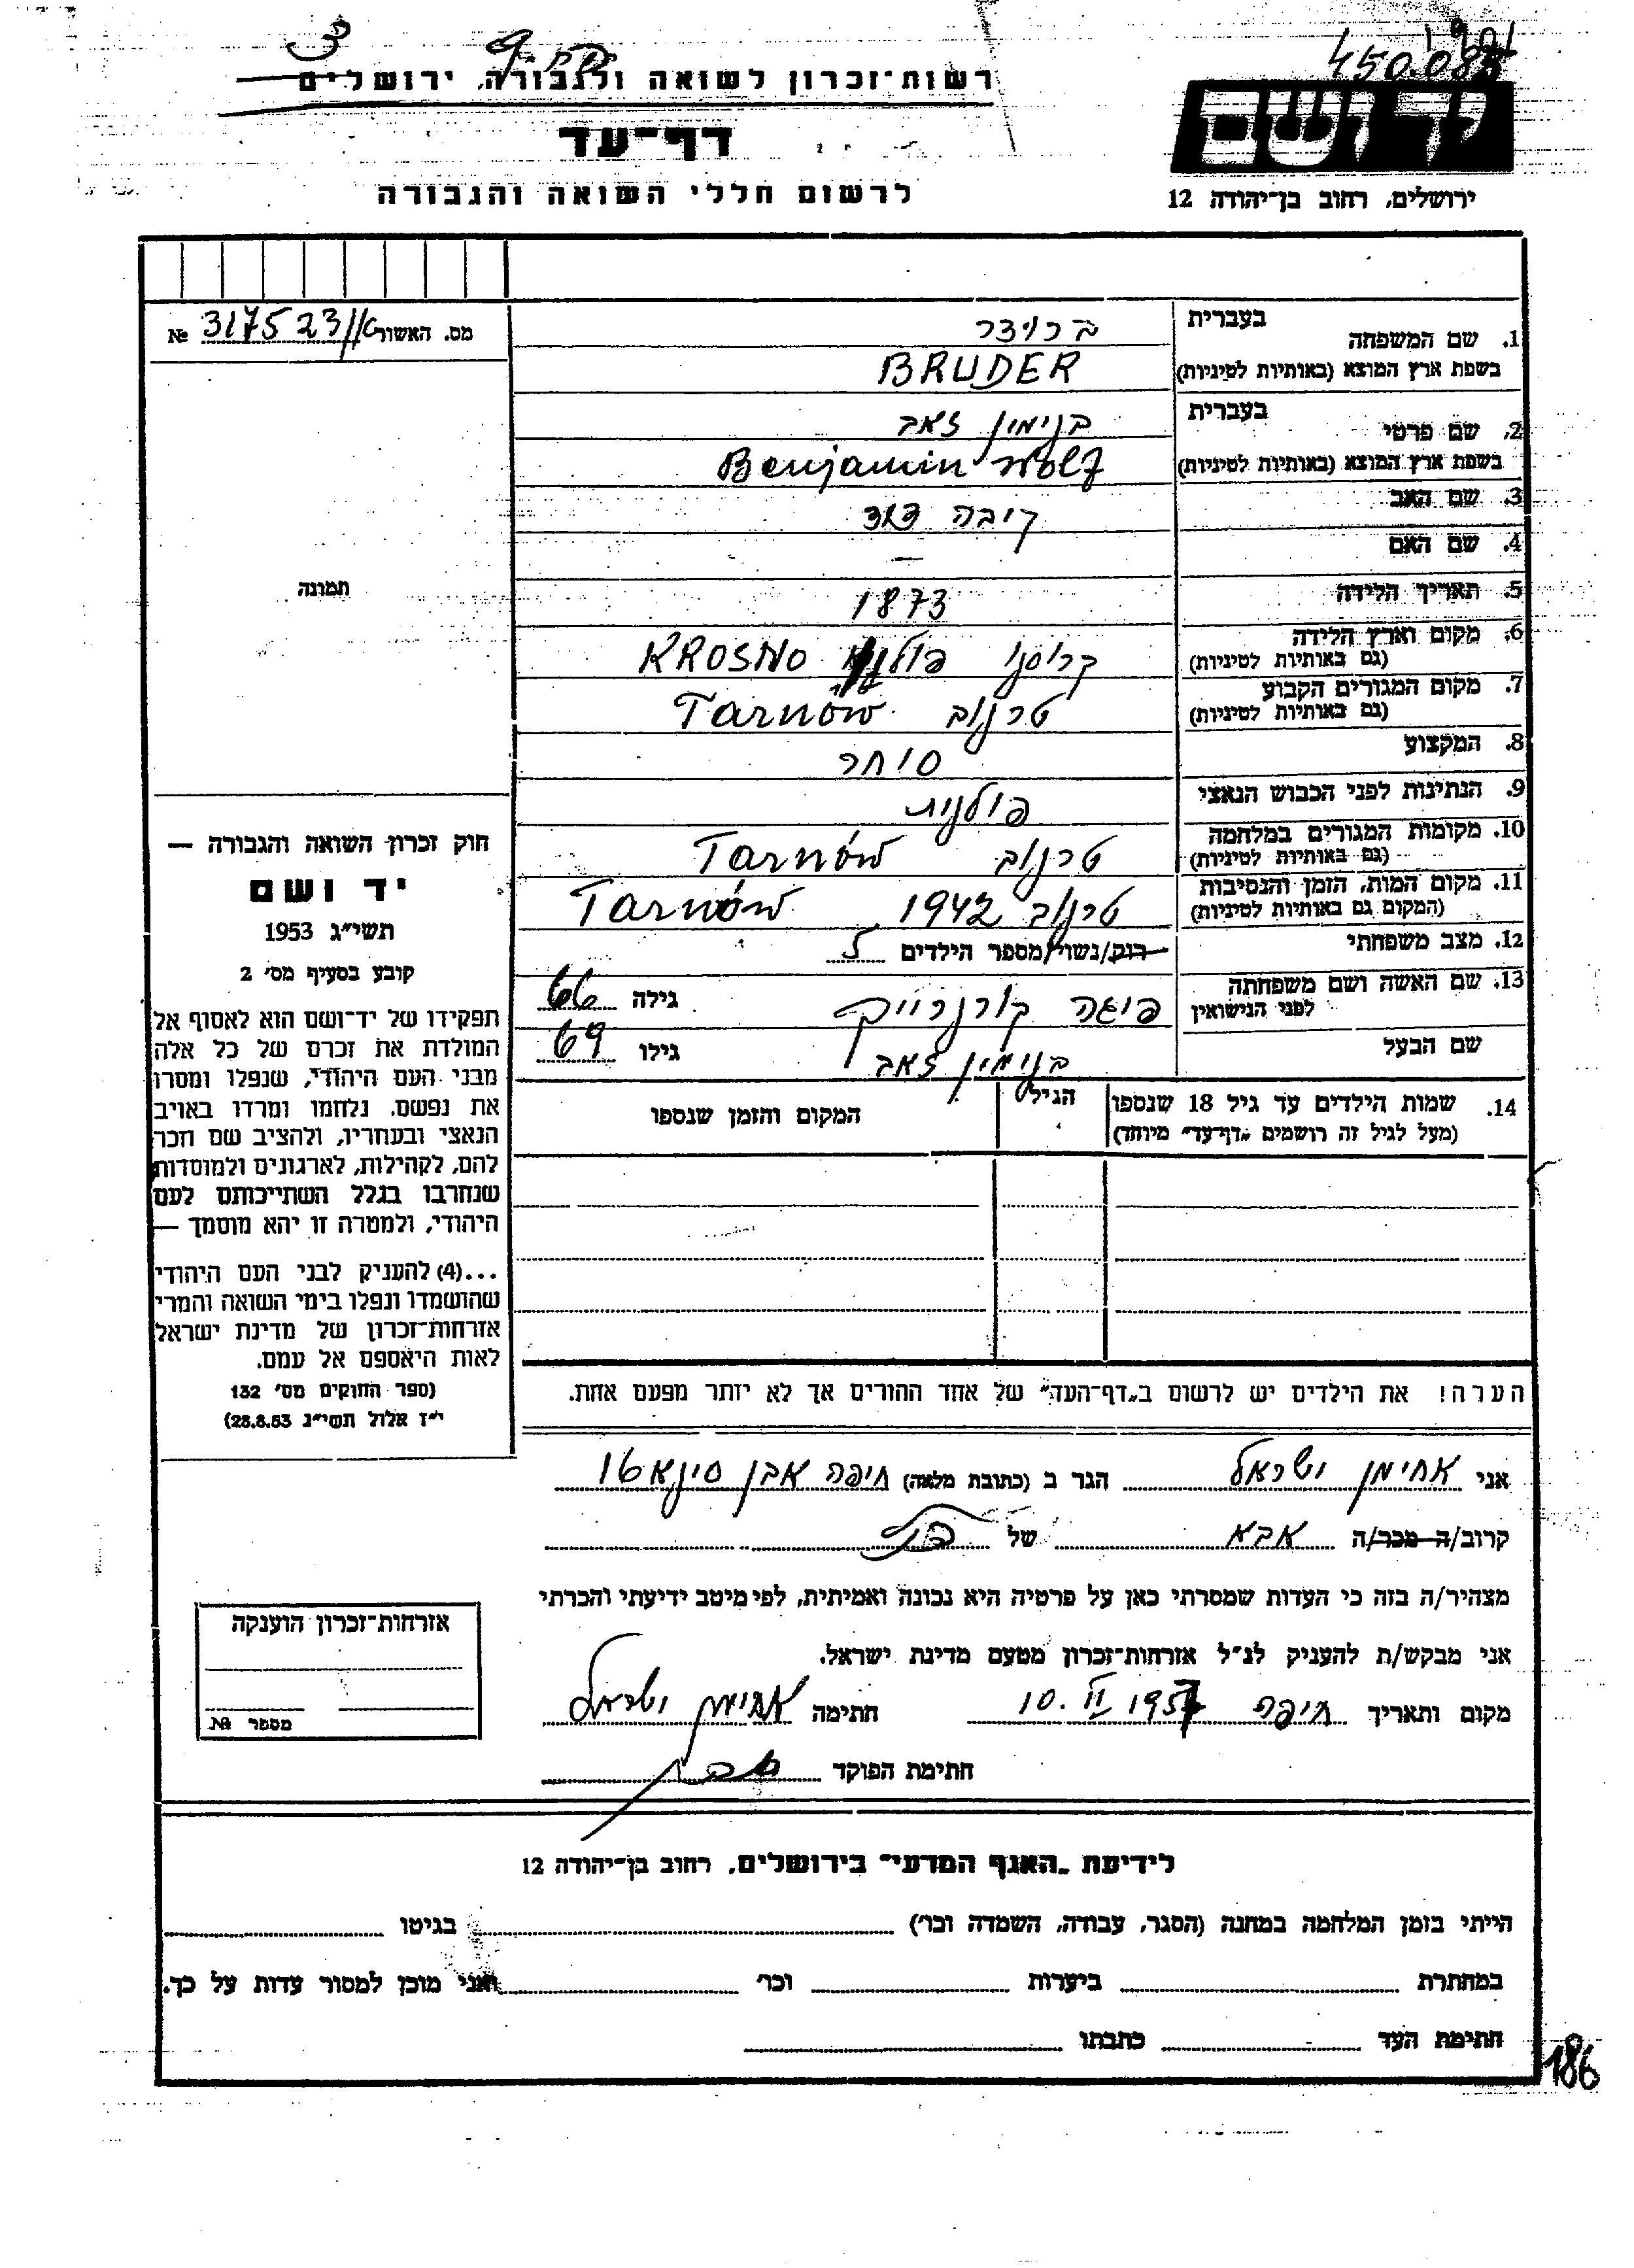 450.085
רשות־זכרון לשואה ולגבורה, ירושלים
יד ושם
דף־עד
ירושלים, רחוב בן־יהודה 12
לרשום חללי השואה והגבורה
מס. האשור 317523 №
1. שם המשפחה
בעברית
ברוידר
בשפת ארץ המוצא (באותיות לטיניות)
BRUDER
2. שם פרטי
בעברית
בנימין זאב
בשפת ארץ המוצא (באותיות לטיניות)
Benjamin
3. שם האב
דוד
4. שם האם
—
תמונה
5. תאריך הלידה
1873
6. מקום וארץ הלידה
(גם באותיות לטיניות)
קרוסנו KROSNO
7. מקום המגורים הקבוע
(גם באותיות לטיניות)
טרנוב Tarnów
8. המקצוע
סוחר
9. הנתינות לפני הכבוש הנאצי
פולנית
10. מקומות המגורים במלחמה
(גם באותיות לטיניות)
טרנוב Tarnów
11. מקום המות, הזמן והנסיבות
(המקום גם באותיות לטיניות)
טרנוב 1942 Tarnów
12. מצב משפחתי
רווק/נשוי/מספר הילדים 5
13. שם האשה ושם משפחתה
לפני הנישואין
פיגה קורנרייך גילה 66
שם הבעל
בנימין זאב גילו 69
14. שמות הילדים עד גיל 18 שנספו
(מעל לגיל זה רושמים „דף־עד” מיוחד)
הגיל
המקום והזמן שנספו
חוק זכרון השואה והגבורה —
יד ושם
תשי״ג 1953
קובע בסעיף מס׳ 2
תפקידו של יד־ושם הוא לאסוף אל
המולדת את זכרם של כל אלה
מבני העם היהודי, שנפלו ומסרו
את נפשם, נלחמו ומרדו באויב
הנאצי ובעוזריו, ולהציב שם וזכר
להם, לקהילות, לארגונים ולמוסדות
שנחרבו בגלל השתייכותם לעם
היהודי, ולמטרה זו יהא מוסמך —
...(4) להעניק לבני העם היהודי
שהושמדו ונפלו בימי השואה והמרי
אזרחות־זכרון של מדינת ישראל
לאות היאספם אל עמם.
(ספר החוקים מס׳ 132
י״ז אלול תשי״ג 28.8.53)
הערה! את הילדים יש לרשום ב„דף־העד” של אחד ההורים אך לא יותר מפעם אחת.
אני אחימן ישראל הגר ב (כתובת מלאה) חיפה אבן סינא 16
קרוב/ה מכר/ה אבא של
מצהיר/ה בזה כי העדות שמסרתי כאן על פרטיה היא נכונה ואמיתית, לפי מיטב ידיעתי והכרתי
אני מבקש/ת להעניק לנ״ל אזרחות־זכרון מטעם מדינת ישראל.
מקום ותאריך חיפה 10. II 1957 חתימה אחימן ישראל
חתימת הפוקד
אזרחות־זכרון הוענקה
מספר №
לידיעת „האגף המדעי” בירושלים, רחוב בן־יהודה 12
הייתי בזמן המלחמה במחנה (הסגר, עבודה, השמדה וכו׳) בגיטו
במחתרת ביערות וכו׳ ואני מוכן למסור עדות על כך.
חתימת העד כתבתו
186